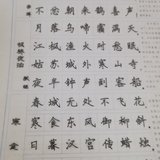 枫桥夜泊
张继
月落乌啼霜满天
江枫渔火对愁眠
姑苏城外寒山寺
夜半钟声到客船
寒食
春城无处不飞花
寒食东风御柳斜
日暮汉宫传蜡烛